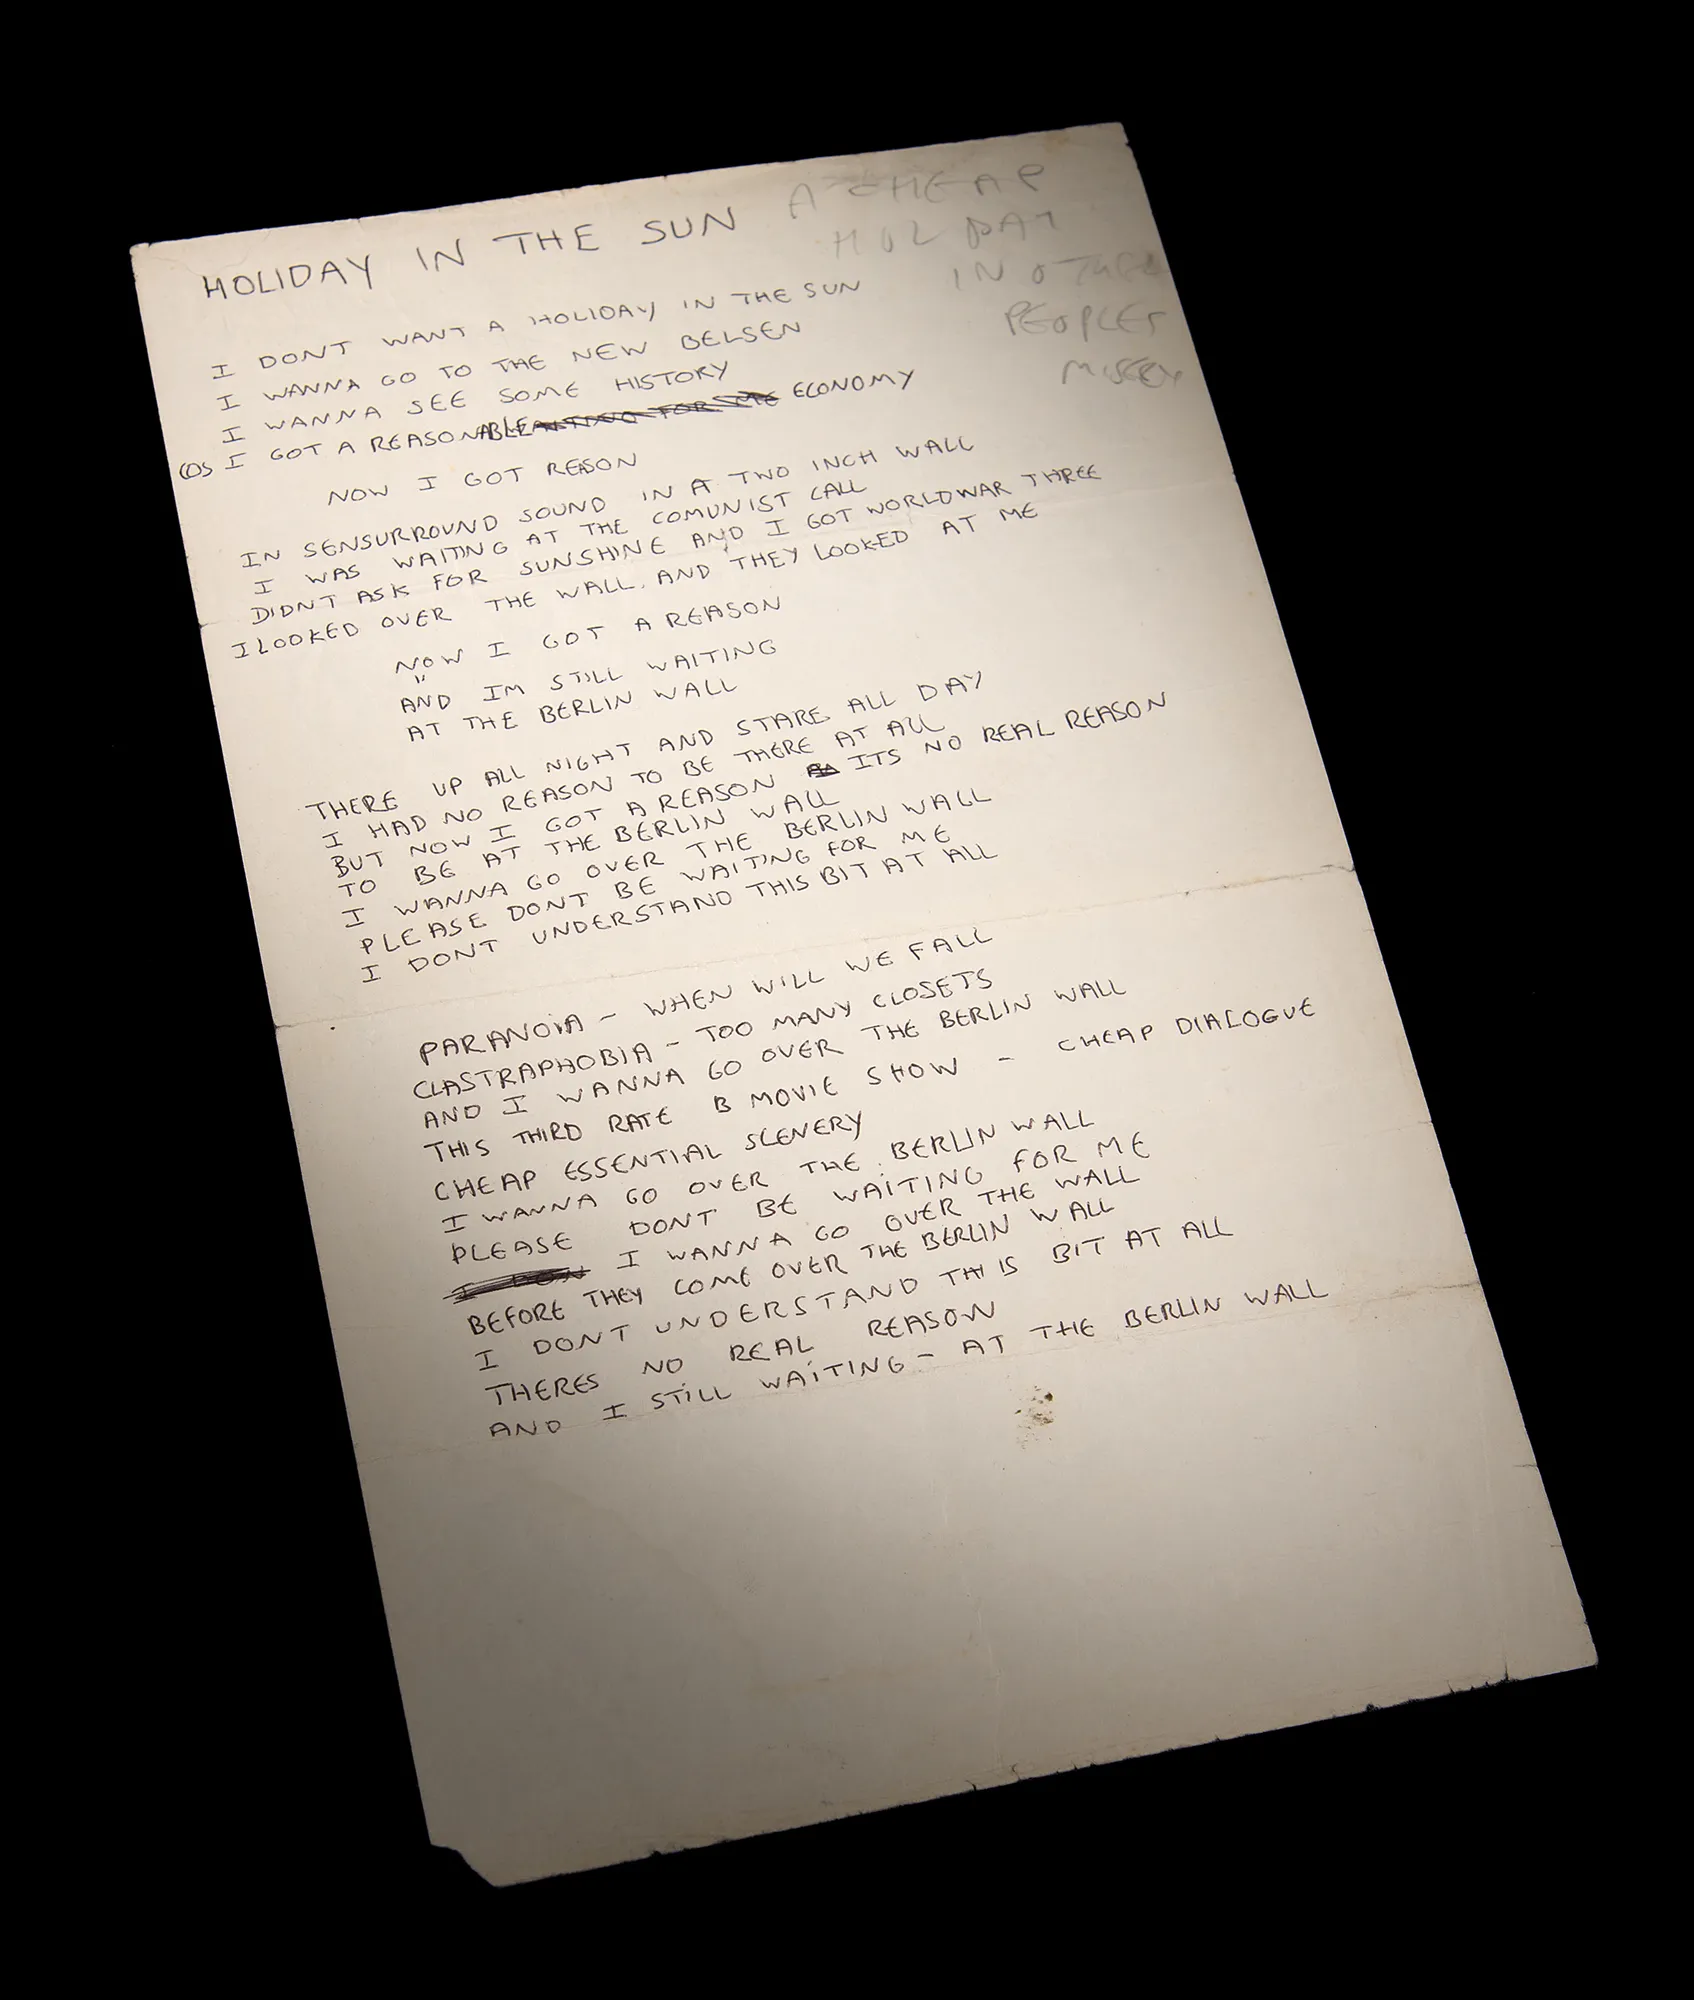 HOLIDAY IN THE SUN
A CHEAP
HOLIDAY
IN OTHER
PEOPLES
MISERY
I DONT WANT A HOLIDAY IN THE SUN
I WANNA GO TO THE NEW BELSEN
I WANNA SEE SOME HISTORY
COS I GOT A REASONABLE ECONOMY
NOW I GOT REASON
IN SENSURROUND SOUND IN A TWO INCH WALL
I WAS WAITING AT THE COMUNIST CALL
DIDNT ASK FOR SUNSHINE AND I GOT WORLDWAR THREE
I LOOKED OVER THE WALL. AND THEY LOOKED AT ME
NOW I GOT A REASON
"
AND IM STILL WAITING
AT THE BERLIN WALL
THERE UP ALL NIGHT AND STARE ALL DAY
I HAD NO REASON TO BE THERE AT ALL
BUT NOW I GOT A REASON ITS NO REAL REASON
TO BE AT THE BERLIN WALL
I WANNA GO OVER THE BERLIN WALL
PLEASE DONT BE WAITING FOR ME
I DONT UNDERSTAND THIS BIT AT ALL
PARANOIA - WHEN WILL WE FALL
CLASTRAPHOBIA - TOO MANY CLOSETS
AND I WANNA GO OVER THE BERLIN WALL
THIS THIRD RATE B MOVIE SHOW - CHEAP DIALOGUE
CHEAP ESSENTIAL SCENERY
I WANNA GO OVER THE BERLIN WALL
PLEASE DONT BE WAITING FOR ME
I DON I WANNA GO OVER THE WALL
BEFORE THEY COME OVER THE BERLIN WALL
I DONT UNDERSTAND THIS BIT AT ALL
THERES NO REAL REASON
AND I STILL WAITING - AT THE BERLIN WALL